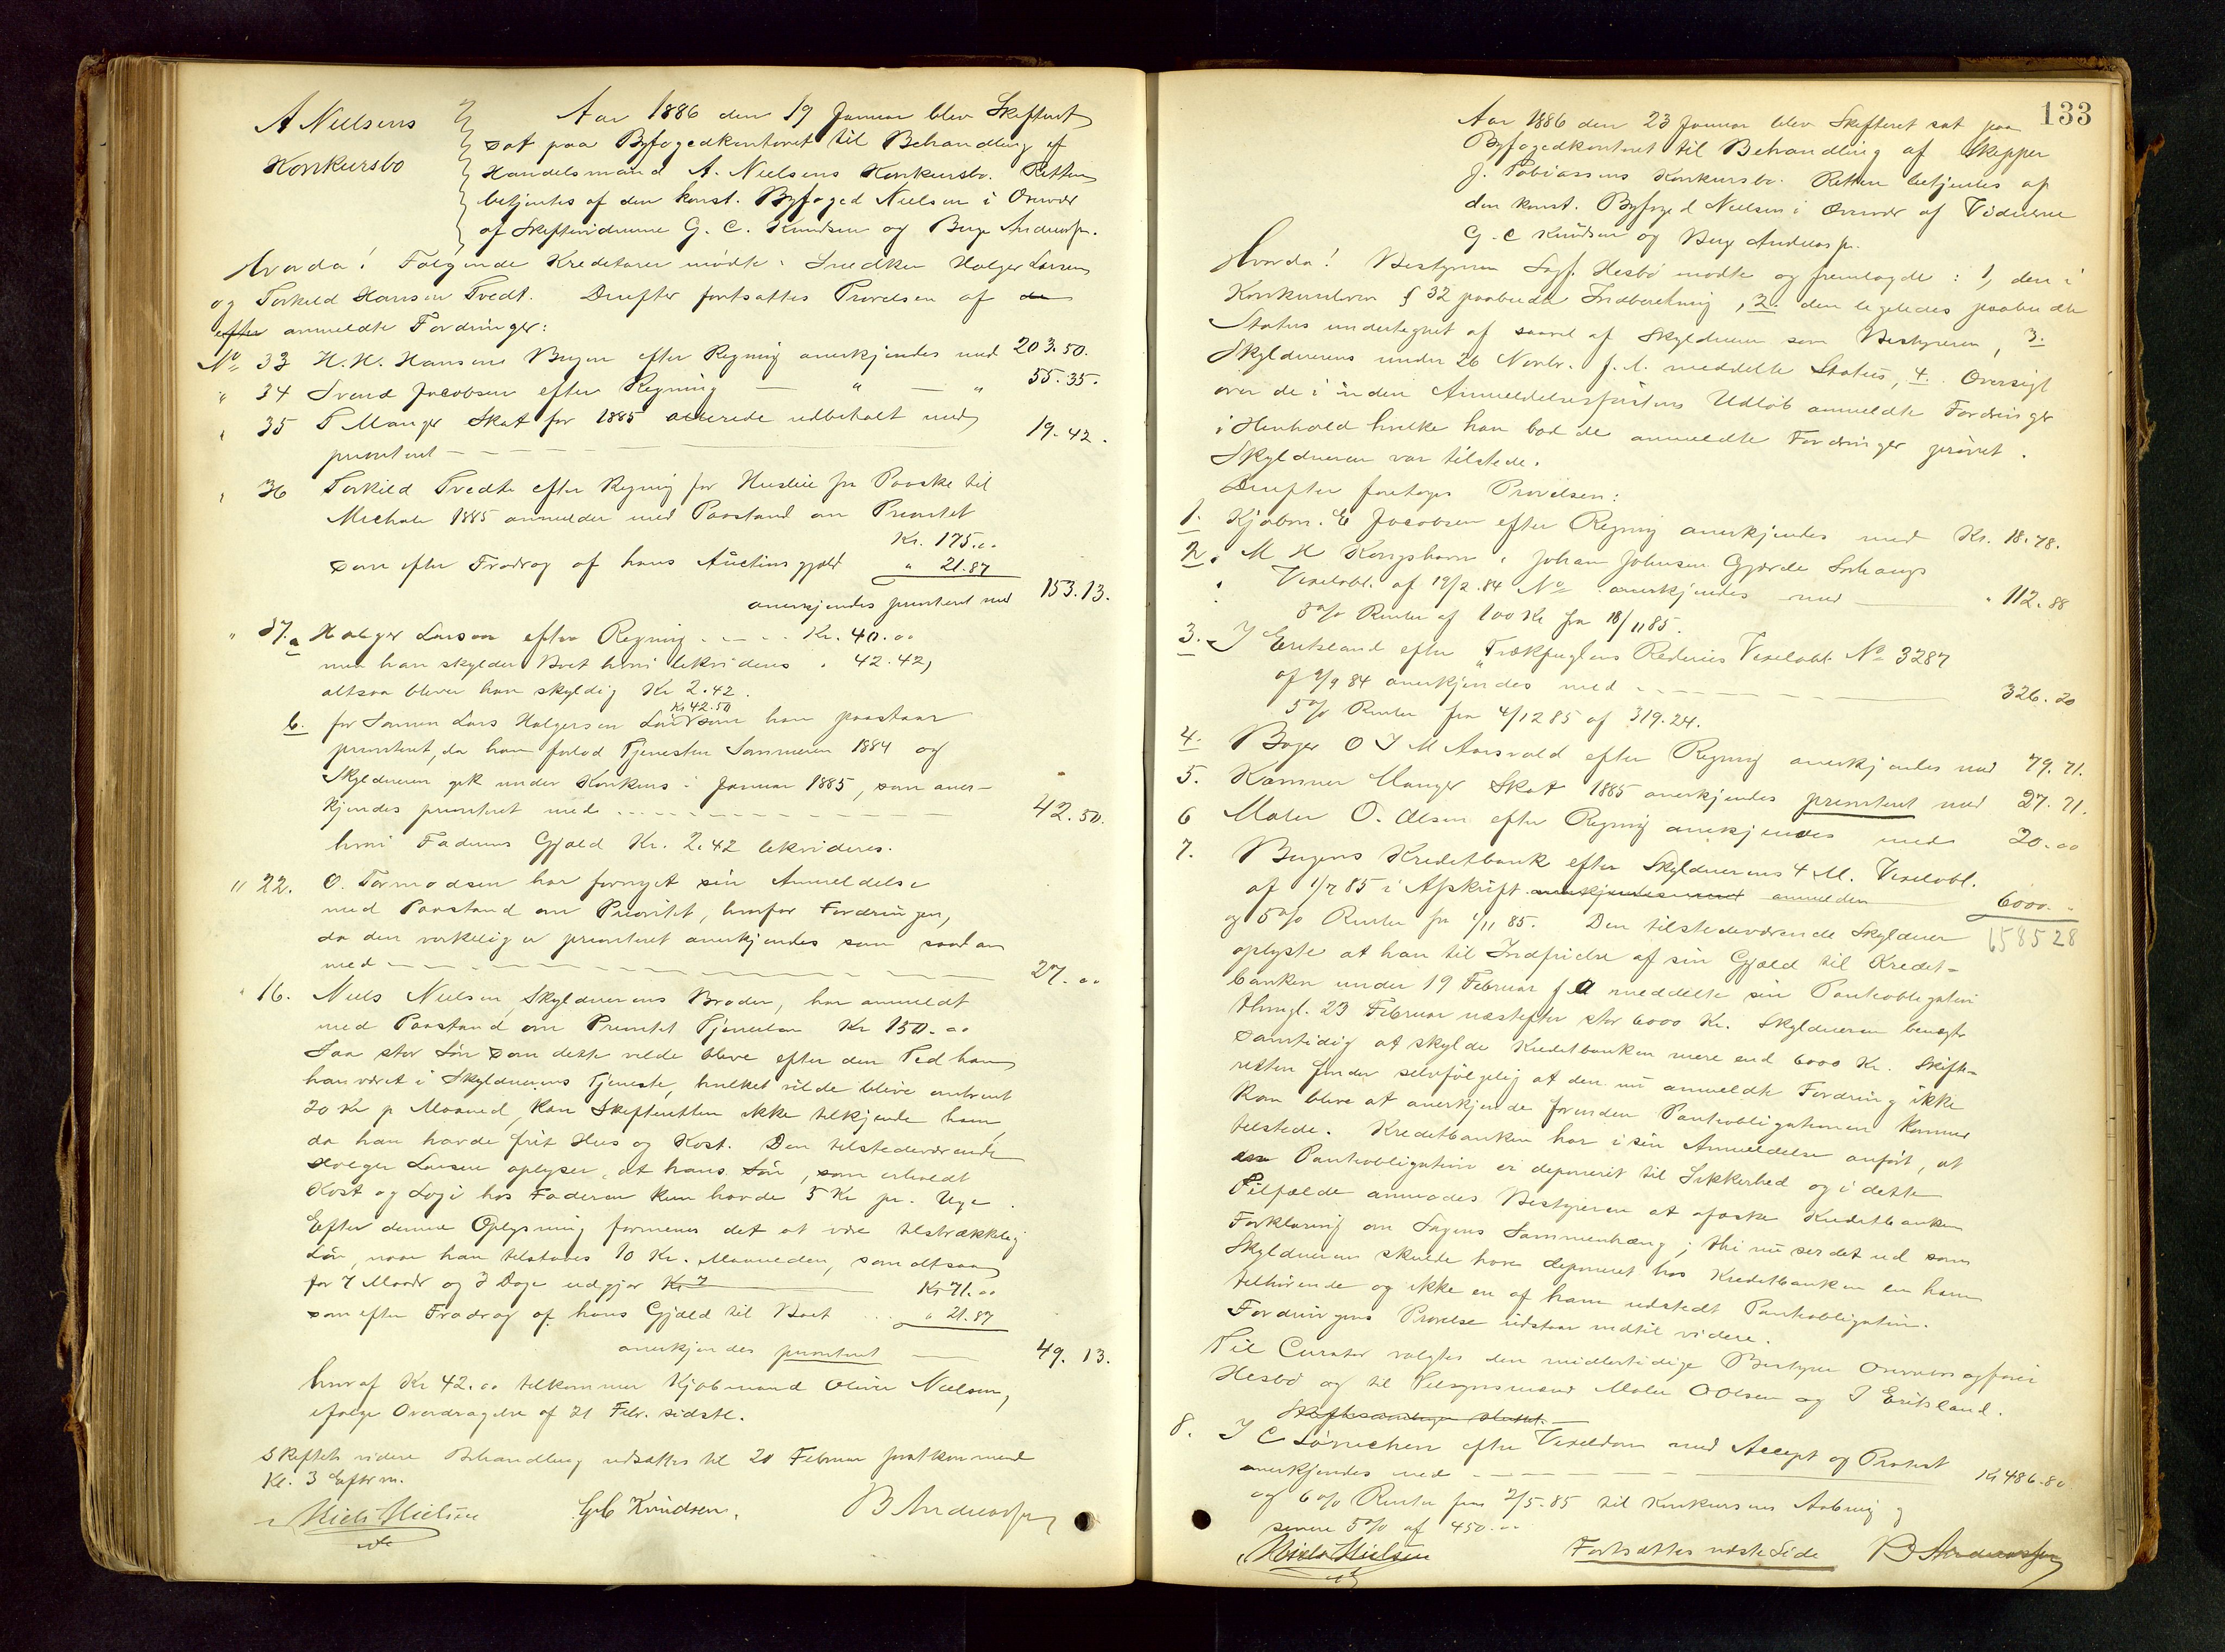 A Nielsens
Konkursbo
Aar 1886 den 19 Januar blev Skifteret
sat paa Byfogedkontoret til Behandling af
Handelsmand A. Nielsens Konkursbo. Retten
betjentes af den konst. Byfoged Nielsen i Overvær
af Skiftevidnerne G. C. Knudsen og Berge Andersen.
Hvorda! Følgende Kreditorer mødte: Snedker Holger Larsen
og Torkild Hansen Tvedt. Derefter fortsattes Prøvelsen af de
efter anmeldte Fordringer:
No 33 H. H. Hansens Bergen efter Regning anerkjendes med 203.50.
" 34 Svend Jacobsen efter Regning — " — " 55.35.
" 35 T Manger Skat for 1885 allerede udbetalt med
prioriteret — 19.42.
" 36 Torkild Tvedt efter Regning for Husleie fra Paaske til
Michaeli 1885 anmelder med Paastand om Prioritet
Kr. 175.00
som efter Fradrag af hans Auctionsgjæld " 21.87
anerkjendes prioriteret med 153.13.
" 37. a Holger Larsen efter Regning Kr. 40.00
men han skylder Boet hvori likvideres " 42.42,
altsaa bliver han skyldig Kr 2.42.
b. for Sønnen Lars Holgersen Løn Kr 42.50 som han paastaar
prioriteret, da han forlod Tjenesten Sommeren 1884 og
Skyldneren gik under Konkurs i Januar 1885, som aner-
kjendes prioriteret med 42.50.
hvori Faderens Gjæld Kr. 2.42 likvideres.
" 22. O. Tormodsen har fornyet sin Anmeldelse
med Paastand om Prioritet, hvorfor Fordringen,
da den virkelig er prioriteret anerkjendes som saadan
med 27.00
" 16. Niels Nielsen, Skyldnerens Broder, har anmeldt
med Paastand om Prioritet Tjenerløn Kr 150.00
Saa stor Løn som dette vilde blive efter den Tid han
har været i Skyldnerens Tjeneste, hvilket vilde blive omtrent
20 Kr p Maaned, kan Skifteretten ikke tilkjende ham,
da han havde frit Hus og Kost. Den tilstedeværende
Holger Larsen oplyser, at hans Søn, som erholdt
Kost og Logi hos Faderen kun havde 5 Kr pr. Uge.
Efter denne Oplysning formenes det at være tilstrækkelig
Løn, naar han tilstaaes 10 Kr. Maaneden, som altsaa
for 7 Maandr og 3 Dage udgjør Kr 7 Kr 71.00
som efter Fradrag af hans Gjæld til Boet " 21.87
anerkjendes prioriteret 49.13.
hvoraf Kr 42.00 tilkommer Kjøbmand Oliver Nielsen,
ifølge Overdragelse af 21 Febr. sidstl.
Skiftets videre Behandling udsættes til 20 Februar førstkommend
Kl. 3 Efterm.
Niels Nielsen G C Knudsen. B Andersen
133
Aar 1886 den 23 Januar blev Skifteret sat paa
Byfogedkontoret til Behandling af Skipper
J. Tobiassens Konkursbo. Retten betjentes af
den konst. Byfoged Nielsen i Overvær af Vidnerne
G. C Knudsen og Berge Andersen.
Hvorda! Bestyreren Sagf. Hesbø mødte og fremlagde: 1, den i
Konkursloven § 32 paabudte Indberetning, 2. den ligeledes paabudte
Status undertegnet af saavel af Skyldneren som Bestyreren, 3.
Skyldnerens under 26 Novbr. f. A. meddelte Status, 4. Oversigt
over de i inden Anmeldelsesfristens Udløb anmeldte Fordringer
i Henhold hvilke han bad de anmeldte Fordringer prøvet.
Skyldneren var tilstede.
Derefter foretoges Prøvelsen:
1. Kjøbm. E Jacobsen efter Regning anerkjendes med Kr. 18.78.
2. M H Kongshavn i Johan Johnsen Gjærde
Vexelobl. af 19/2.84 No anerkjendes med " 112.88
5% Renter af 100 Kr fra 18/11 85.
3. J Eriksland efter "Trækfuglens Rederies Vexelobl. No 3287
af 9/9 84 anerkjendes med 326.20
5% Renter fra 4/12 85 af 319.24.
4. Bager O J M Aarsvold efter Regning anerkjendes med 79.71.
5. Kæmner Manger Skat 1885 anerkjendes prioriteret med 27.71.
6 Maler O. Olsen efter Regning anerkjendes med 20.00
7. Bergens Kreditbank efter Skyldnerens 4 M. Vexelobl.
af 1/7 85 i Afskrift anerkjendes med anmelder 6000..
og 5% Renter fra 1/11 85. Den tilstedeværende Skyldner 6585 28
oplyste at han til Indfrielse af sin Gjæld til Kredit-
banken under 19 Februar f A meddelte sin Panteobligation
thingl. 23 Februar næstefter stor 6000 Kr. Skyldneren benægter
samtidig at skylde Kreditbanken mere end 6000 Kr. Skifte-
retten finder selvfølgelig at den nu anmeldte Fordring ikke
kan blive at anerkjende forinden Panteobligationen kommer
tilstede. Kreditbanken har i sin Anmeldelse anført, at
en Panteobligation er deponeret til Sikkerhed og i dette
Tilfælde anmodes Bestyreren at afæske Kreditbanken
Forklaring om Sagens Sammenhæng; thi nu ser det ud som
Skyldneren skulde have deponeret hos Kreditbanken en ham
tilhørende og ikke en af ham udstedt Panteobligation.
Fordringens Prøvelse udstaar indtil videre.
Til Curator valgtes den midlertidige Bestyrer Overretssagfører
Hesbø og til Tilsynsmænd Maler O Olsen og J Eriksland.
Skiftesamlingen sluttet.
8. J C Lønechen efter Vexeldom med Accept og Protest
anerkjendes med Kr 486.80
og 6% Renter fra 2/5-85 til Konkursens Aabning og
senere 5% af 450.00
Niels Nielsen Fortsættes næste Side B Andersen